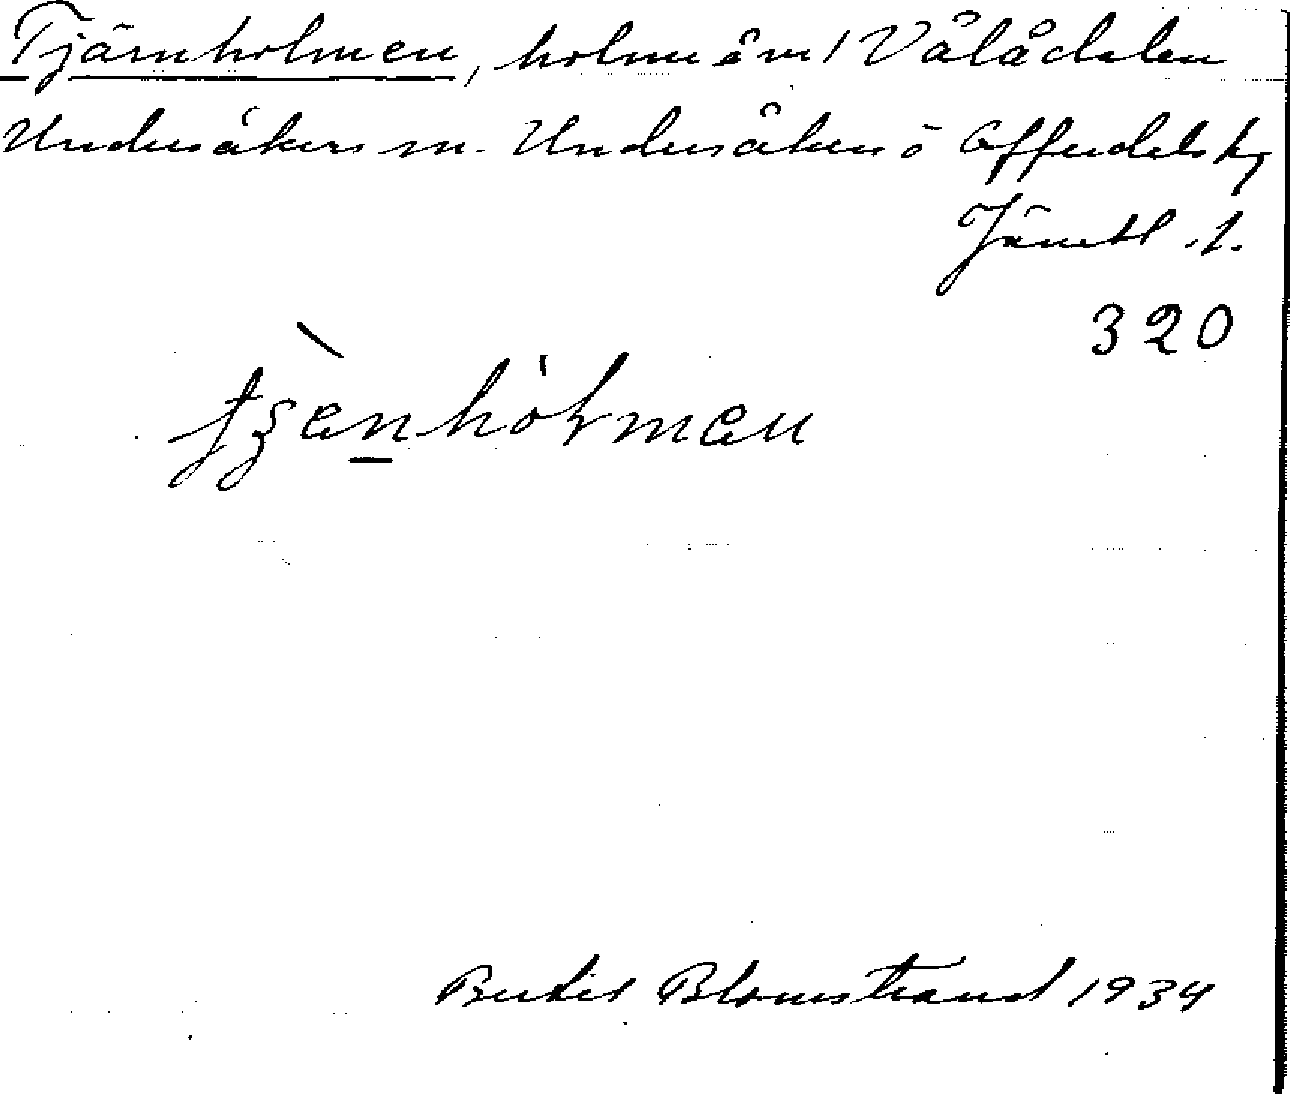 Tjärnholmen, holme öm / Vålådalen
Undersåkers sn. Undersåkers o Offerdals tg
Jämtl. l.
320
Bertil Blomstrand 1934